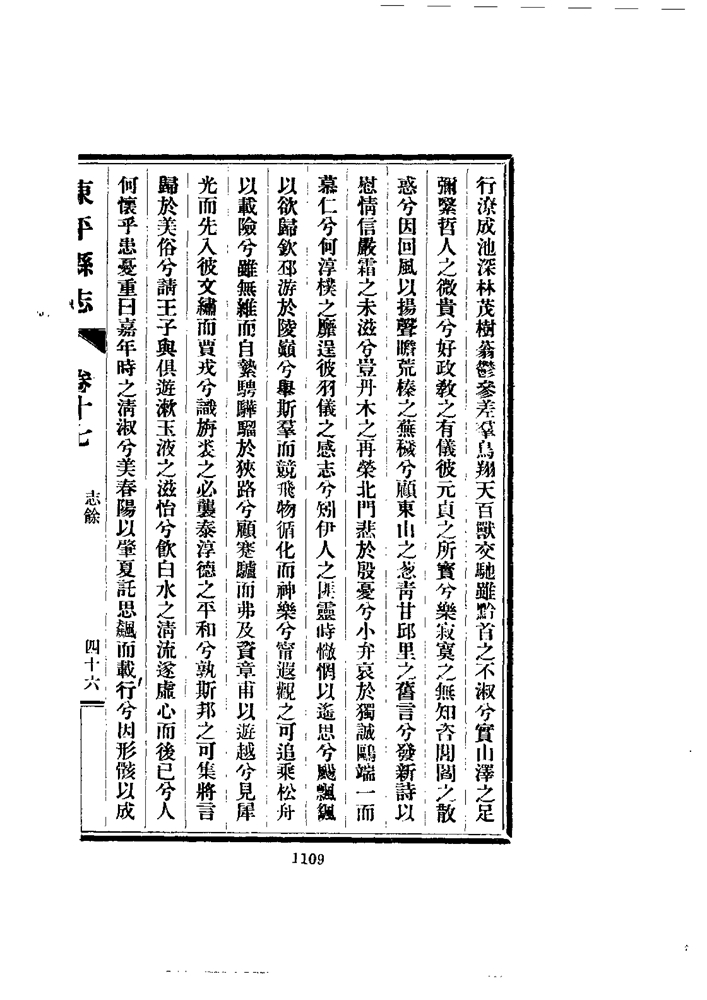 行潦成池深林茂樹蓊鬱參差羣鳥翔天百獸交馳雖黔首之不淑兮實山澤之足
彌緊哲人之微貴兮好政敎之有儀彼元貞之所寳兮樂寂寞之無知咨閭閻之散
惑兮因回風以揚聲瞻荒榛之蕪穢兮顧東山之葱靑甘邱里之舊言兮發新詩以
慰情信嚴霜之未滋兮豈丹木之再榮北門悲於殷憂兮小弁哀於獨誠鷗端一而
慕仁兮何淳樸之靡逞彼羽儀之感志兮矧伊人之匪靈時懒惘以遙思兮飈飄颻
以欲歸欽邳游於陵巔兮舉斯羣而競飛物循化而神樂兮甯遐觀之可追乘松舟
以載險兮雖無維而自縶騁驊騮於狹路兮顧蹇驢而弗及資章甫以遊越兮見犀
光而先入彼文繡而賈戎兮識旃裘之必襲泰淳德之平和兮孰斯邦之可集將言
歸於美俗兮請王子與俱遊漱玉液之滋怡兮飮白水之淸流遂虛心而後已兮人
何懷乎患憂重曰嘉年時之淸淑兮美春陽以肇夏託思飈而載行兮因形骸以成
東平縣志 卷十七 志餘 四十六
1109